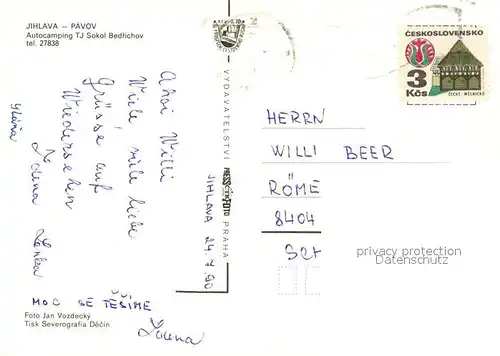 JIHLAVA – PÁVOV
Autocamping TJ Sokol Bedřichov
tel. 27838
Ahoi Willi
Viele viele liebe
Grüsse auf
Wiedersehen
Zdena Lenka
MOC SE TĚŠÍME
Zdena
Foto Jan Vozdecký
Tisk Severografia Děčín
VYDAVATELSTVÍ PRESSFOTO PRAHA
JIHLAVA 24.7.90
ČESKOSLOVENSKO
3
Kčs
ČECHY - MĚLNICKO
HERRN
WILLI BEER
RÖME
8404
privacy protection
Datenschutz